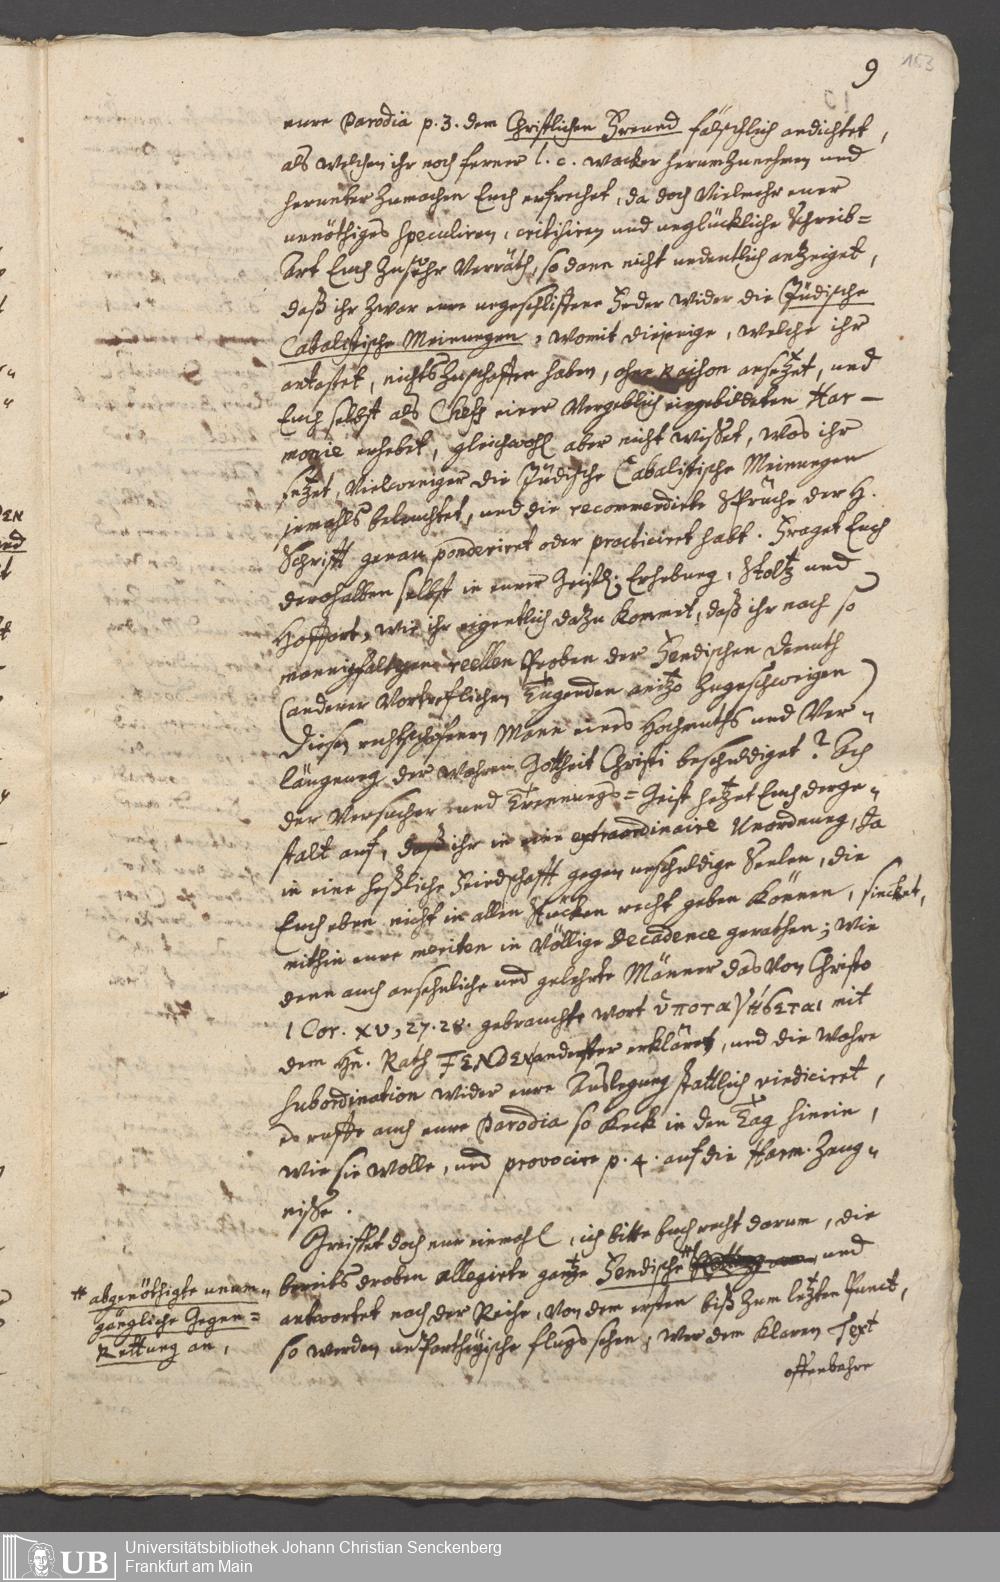 9 153
eure Parodia p. 3. dem Christlichen Freund fälschlich andichtet,
als welchen ihr noch ferner l. c. wacker herumzunehmen und
herunter zumachen Euch erfrechet, da doch Vielmehr euer
unnöthiges speculiren, critisiren und unglückliche Schreib=
Art Euch zusehr Verräth, so dann nicht undeutlich anzeiget,
daß ihr zwar eure ungeschliffene Feder wider die Jüdische
Cabalistische Meinungen, womit diejenige, welche ihr
antastet, nichts zuschaffen haben, ohne raison ansetzet, und
Euch selbst als Cheff einer Vergeblich eingebildeten Har-
monie erhebet, gleichwohl aber nicht wisset, was ihr
setzet, Vielweniger die Jüdische Cabalistische Meinungen
jemahls beleuchtet, und die recommendirte Sprüche der H.
Schrifft genau ponderiret oder practiciret habt. Fraget Euch
derohalben selbst in eurer Geistl: Erhebung, Stoltz und
Hoffart, wie ihr eigentlich dazu kommet, daß ihr nach so
mannigfaltigen reellen Proben der Fendischen Demuth
(anderer Vortreflichen Tugenden anitzo zugeschweigen)
diesen rechtschaffenen Mann eines Hochmuths und Ver-
läugnung der wahren Gottheit Christi beschuldiget? Ach
der Versucher und Trennungs=Geist hetzet Euch derge-
stalt auf, daß ihr in eine extraordinaire Unordnung, Ja
in eine heßliche Feindschafft gegen unschuldige Seelen, die
Euch eben nicht in allen Stücken recht geben können, sincket,
mithin eure meriten in Völlige decadence gerathen; wie
denn auch ansehnliche und gelehrte Männer das Von Christo
1 Cor. XV, 27. 28. gebrauchte wort ὑποταγήσεται mit
dem Hn. Rath FENDEN anderster erkläret, und die wahre
subordination wider eure Auslegung stattlich vindiciret,
es ruffe auch eure Parodia so keck in den Tag hinein,
wie sie wolle, und provocire p. 4. auf die Harm. Zeug-
nisse.
Greiffet doch nur einmahl, ich bitte Euch recht darum, die
bereits droben allegirte gantze Fendische # und
antwortet nach der Reihe, von dem ersten biß zum letzten Punct,
so werden unPartheyische flugs sehen, wer dem klaren Text
offenbahre
# abgenöthigte unum-
gängliche Gegen=
Rettung an,
UB Universitätsbibliothek Johann Christian Senckenberg
Frankfurt am Main